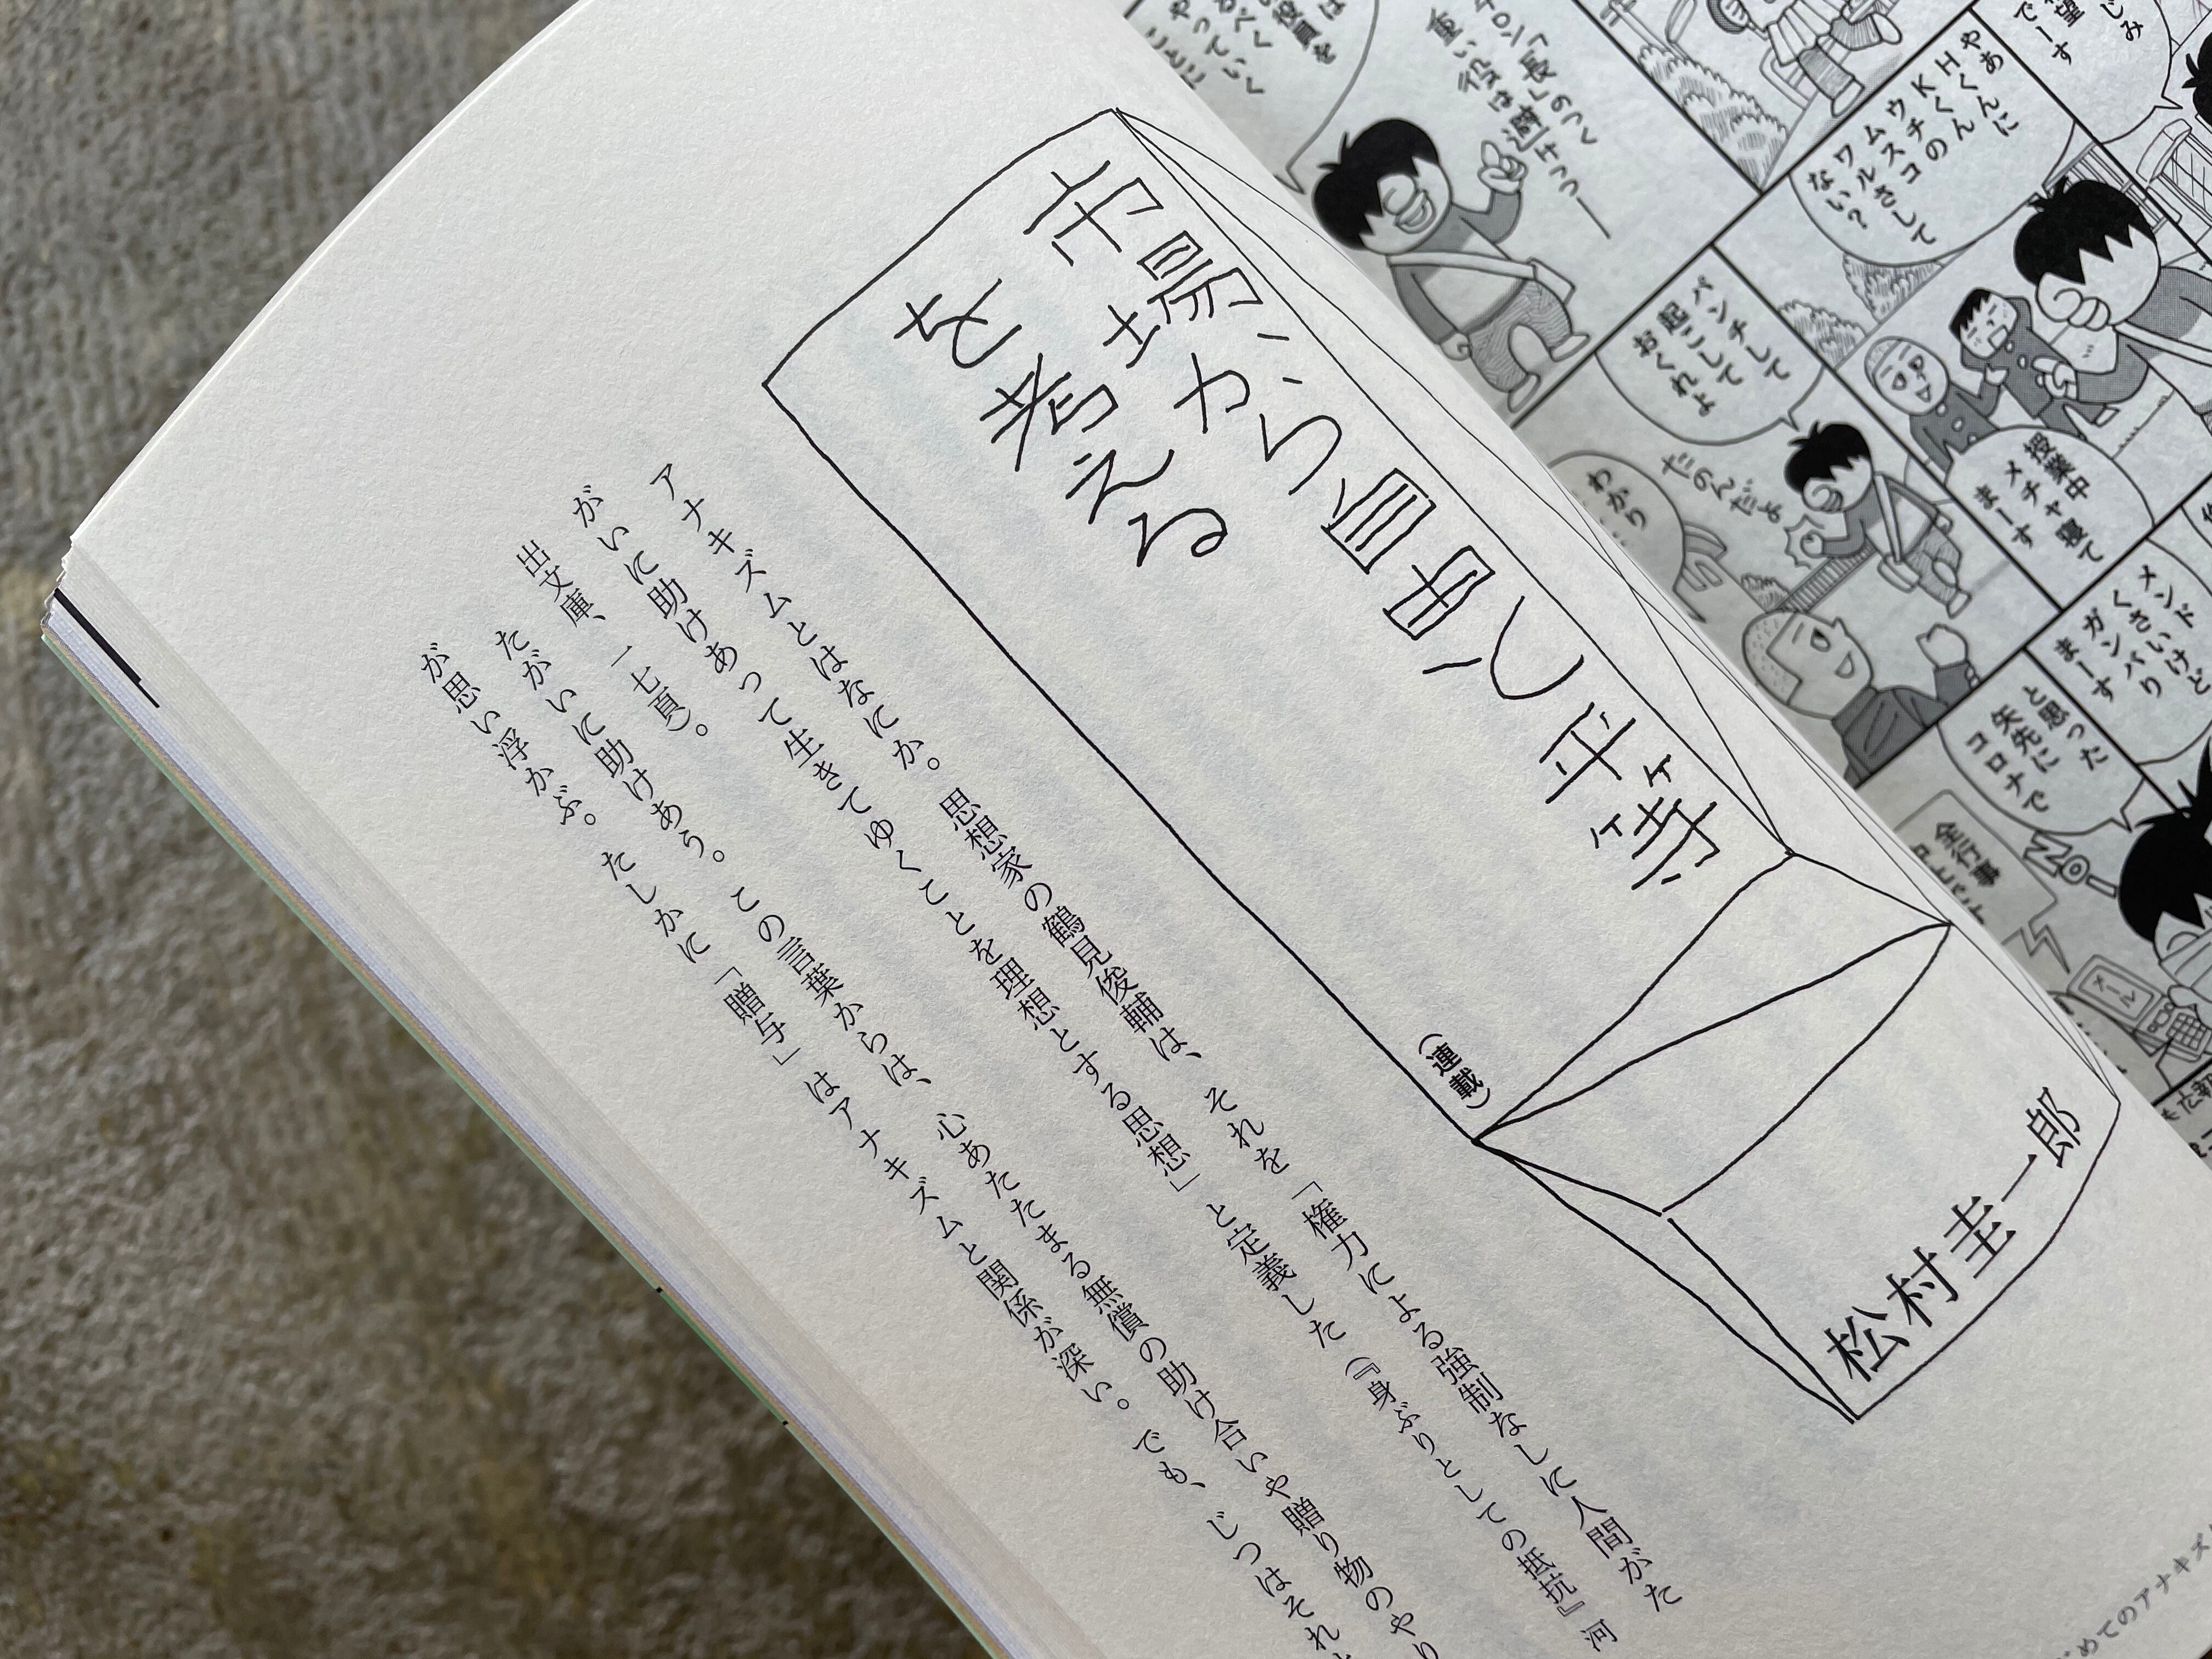 市場から自由と平等
を考える
（連載）
松村圭一郎
アナキズムとはなにか。思想家の鶴見俊輔は、それを「権力による強制なしに人間がた
がいに助けあって生きてゆくことを理想とする思想」と定義した（『身ぶりとしての抵抗』河
出文庫、一七頁）。
たがいに助けあう。この言葉からは、心あたたまる無償の助け合いや贈り物のやり
が思い浮かぶ。たしかに「贈与」はアナキズムと関係が深い。でも、じつはそれ
めてのアナキズ
じみ
でーす
やあくんに
Hくん
Kくんの
ウチコ
ムスさして
ワルさして
ない？
「長」のつく
重い役は避けつつー
パンチして
起こして
おくれよ
だのんだよ
わかり
授業中
メチャ寝て
まーす
メンド
くさいけど
ガンバり
まーす
と思った
矢先に
コロナで
全行事
NO!
メール